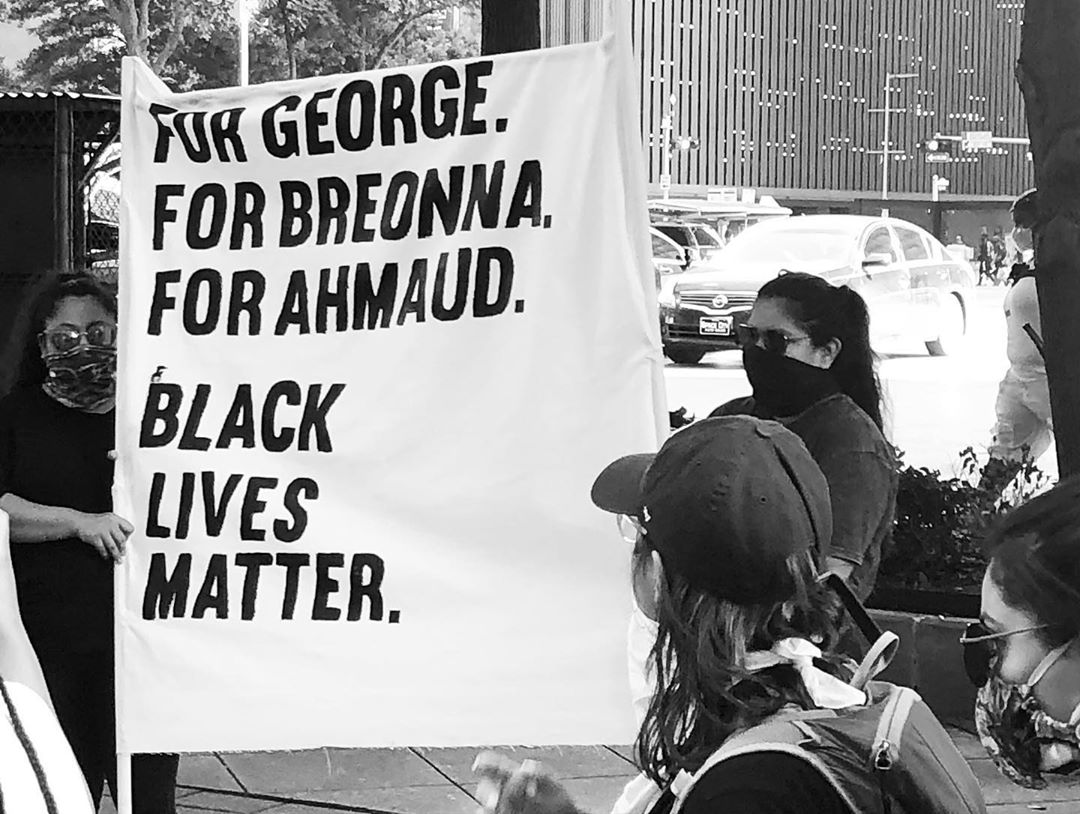 FOR GEORGE.
FOR BREONNA.
FOR AHMAUD.
BLACK
LIVES
MATTER.